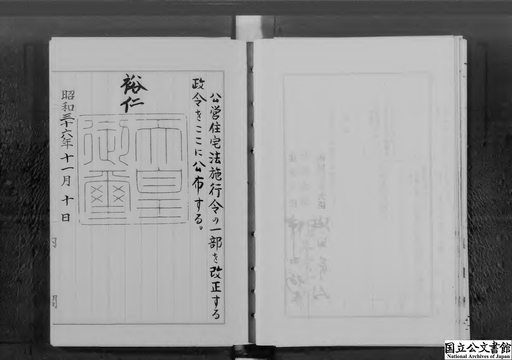 公営住宅法施行令の一部を改正する
政令をここに公布する。
裕仁
天皇御璽
昭和三十六年十一月十日
国立公文書館
National Archives of Japan